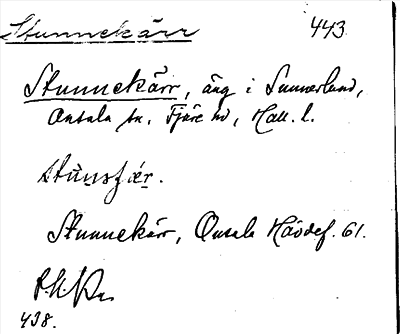 Stunnekärr 443
Stunnekärr, äng i Sunnerlund,
Onsala sn, Fjäre hd, Hall. l.
Stunnekärr, Onsala Hävdef. 61.
438.